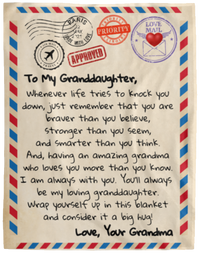 PARIS
PRIORITY
LOVE
MAIL
APPROVED
To My Granddaughter,
Whenever life tries to knock you
down, just remember that you are
braver than you believe,
stronger than you seem,
and smarter than you think.
And, having an amazing grandma
who loves you more than you know.
I am always with you. You'll always
be my loving granddaughter.
Wrap yourself up in this blanket
and consider it a big hug!
Love, Your Grandma